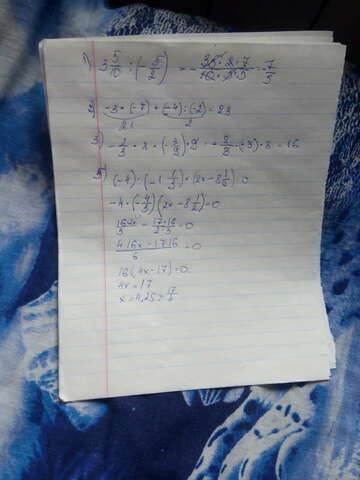 1) 3 5/10 : (- 5/2) = - 35 · 2 · 7 / 10 · 5 · 5 = - 7/5
2) -3 · (-7) + (-4) : (-2) = 23
21 2
3) - 2/3 · 8 · (- 3/9) · 9 : + 8/8 · (-3) · 8 = 16
(-4) · (-1 1/3) · (2x - 8 1/2) = 0
-4 · (- 4/3) (2x - 8 1/2) = 0
16·2x/3 - 17·16/2·3 = 0
4·16x - 17·16 / 6 = 0
16 (4x - 17) = 0
4x = 17
x = 4,25 = 17/4